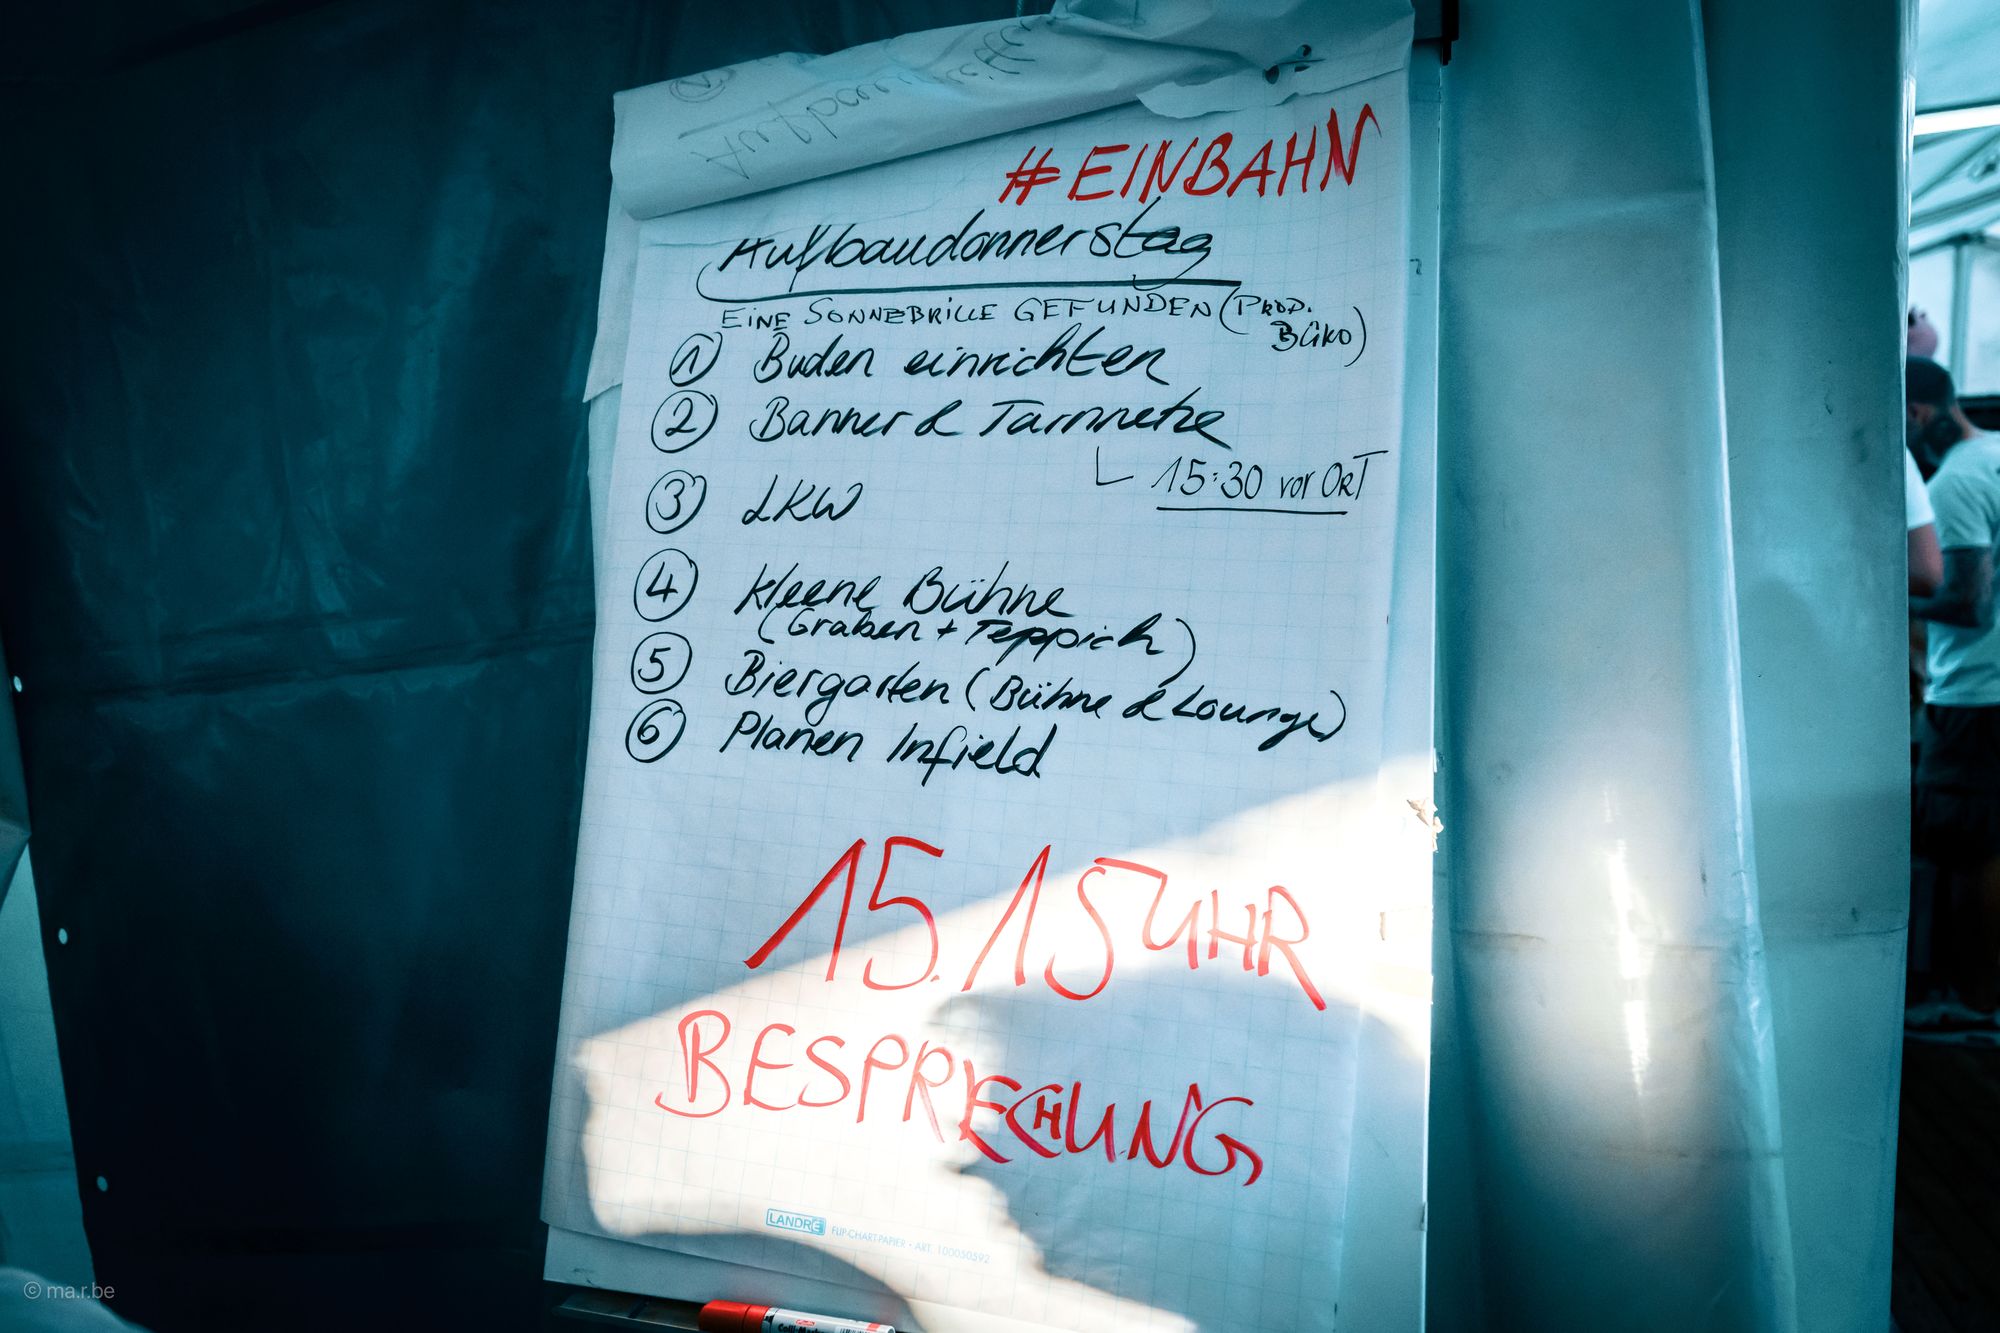 Aufbaumitt
#EINBAHN
Aufbaudonnerstag
EINE SONNEBRILLE GEFUNDEN (PROD. BÜRO)
① Buden einrichten
② Banner & Tarnnetze
15:30 vor ORT
③ LKW
④ kleene Bühne
(Graben + Teppich)
⑤ Biergarten (Bühne & Lounge)
⑥ Planen Infield
15.15 UHR
BESPRECHUNG
LANDRÉ FLIP-CHART-PAPIER • ART. 100050592
© ma.r.be